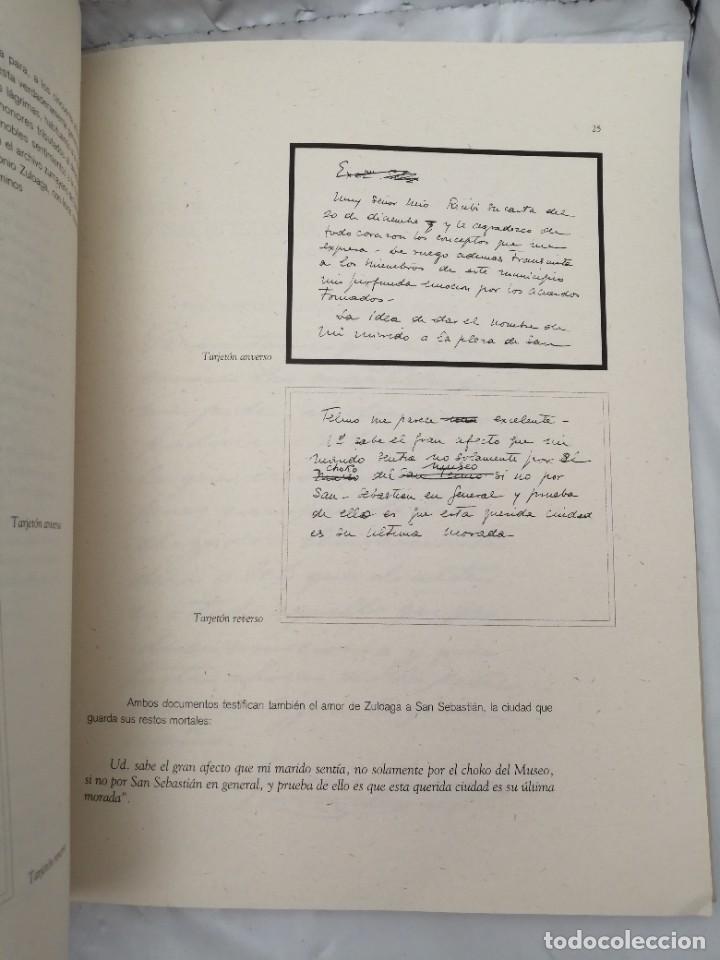 a para, a los cincuenta
esta verdaderamente
lágrimas, habituad
honores tributados a
nobles sentimientos
el archivo zumayano
onio Zuloaga, con
minos
Tarjetón anverso
Tarjetón reverso
25
Muy Señor mio Recibi su carta del
20 de diciembre y le agradezco de
todo corazon los conceptos que me
expresa - Le ruego ademas transmita
a los miembros de este municipio
mi profunda emocion por los acuerdos
Tomados -
La idea de dar el nombre de
mi marido a la plaza de San
Tarjetón anverso
Telmo me parece excelente -
Ud sabe el gran afecto que mi
marido sentia no solamente por el
choko del San Telmo museo si no por
San-Sebastian en general y prueba
de ello es que esta querida ciudad
es su ultima morada -
Tarjetón reverso
Ambos documentos testifican también el amor de Zuloaga a San Sebastián, la ciudad que
guarda sus restos mortales:
Ud. sabe el gran afecto que mi marido sentía, no solamente por el choko del Museo,
si no por San Sebastián en general, y prueba de ello es que esta querida ciudad es su última
morada".
todocoleccion
todocoleccion.net